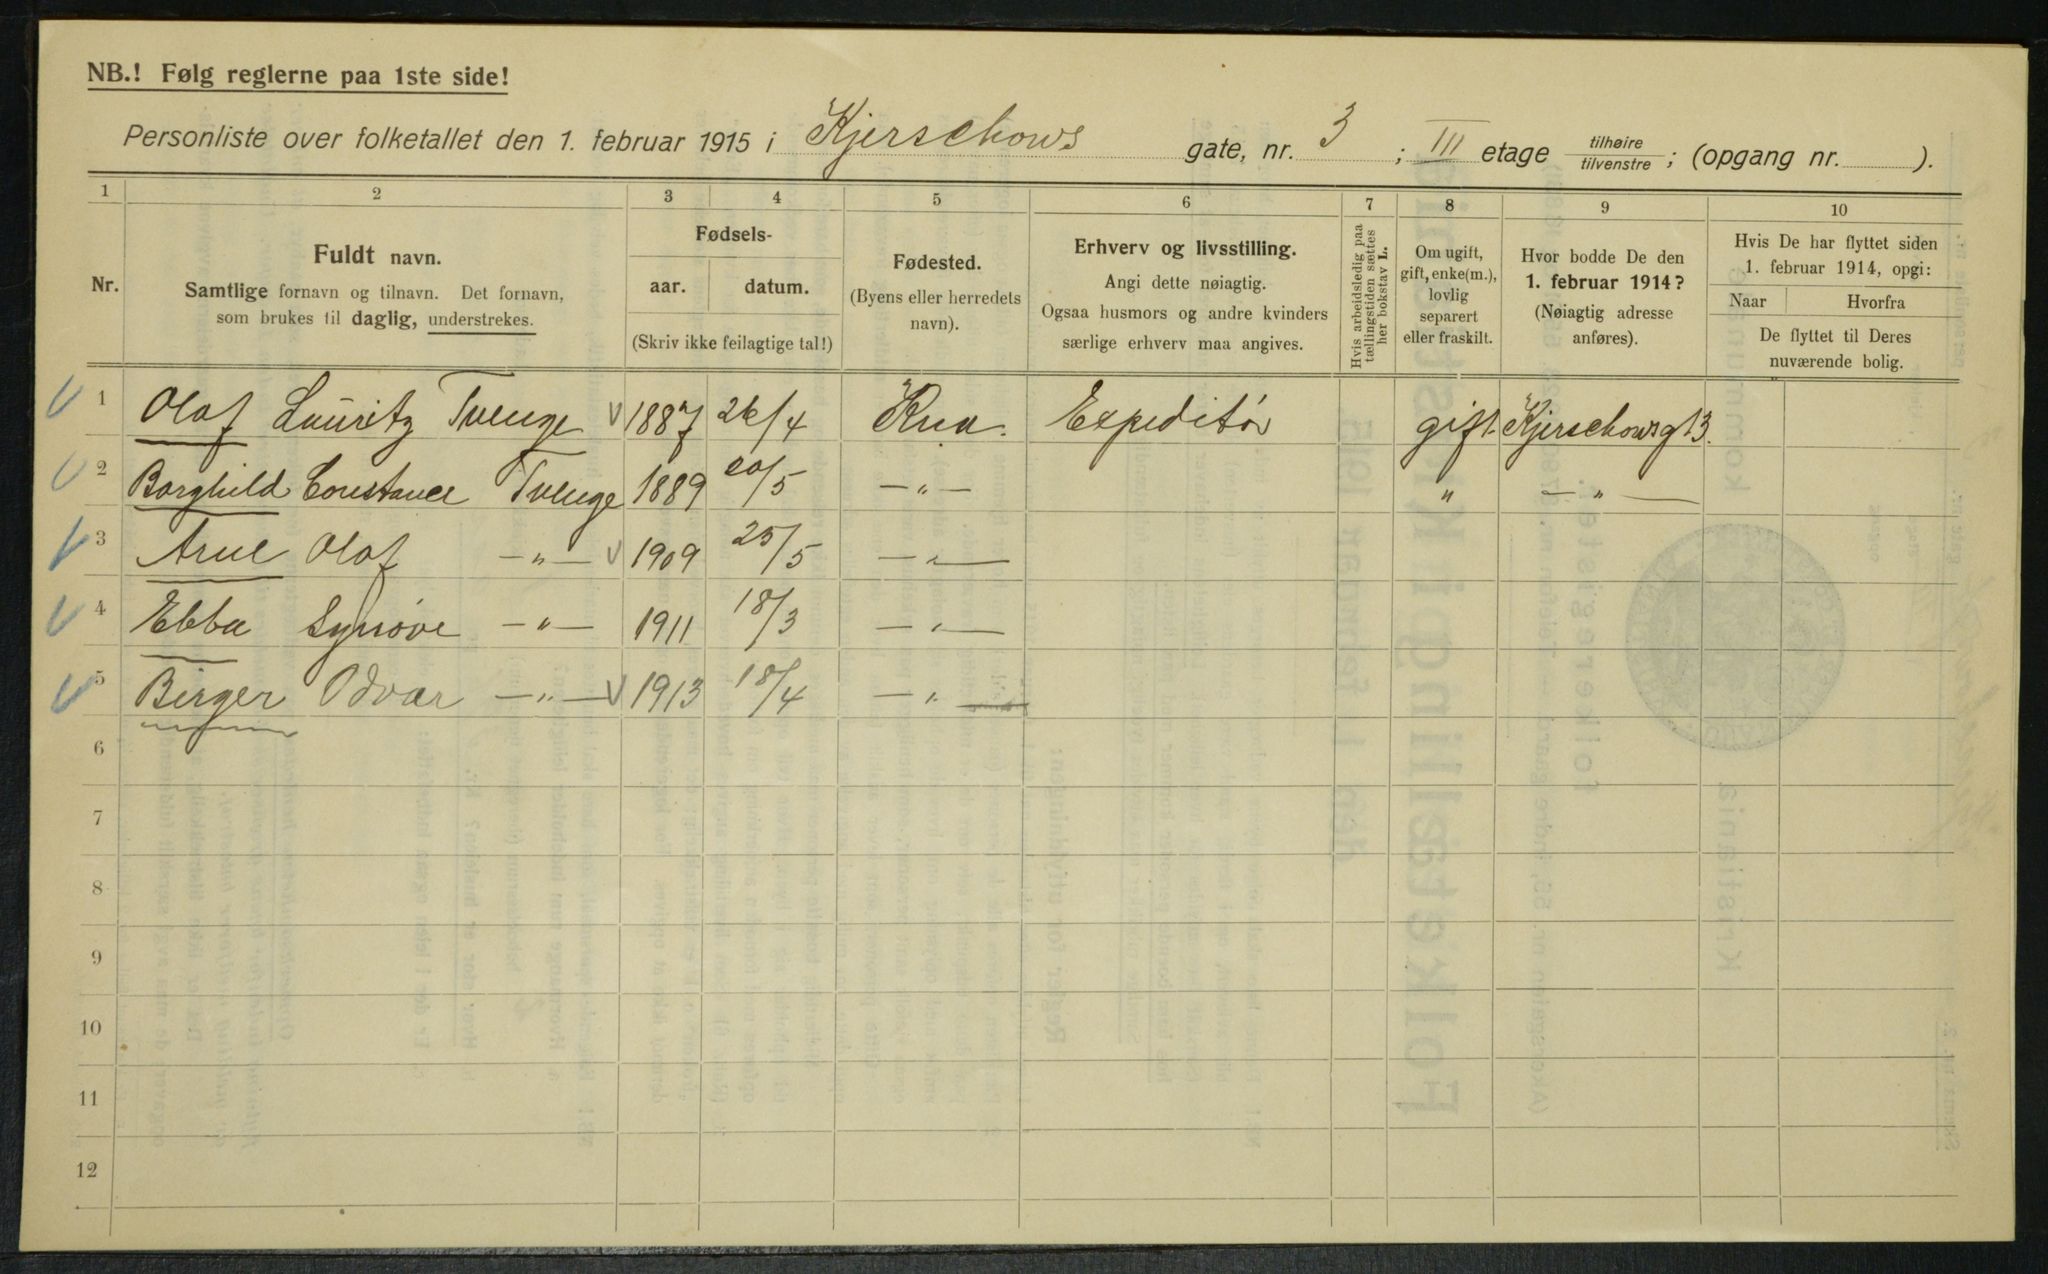 NB.! Følg reglerne paa 1ste side!
Personliste over folketallet den 1. februar 1915 i Kjerschows gate, nr. 3 ; III etage tilhøire tilvenstre ; (opgang nr. ).
1 2 3 4 5 6 7 8 9 10
Nr.
Fuldt navn.
Samtlige fornavn og tilnavn. Det fornavn,
som brukes til daglig, understrekes.
Fødsels-
aar. datum.
(Skriv ikke feilagtige tal!)
Fødested.
(Byens eller herredets
navn).
Erhverv og livsstilling.
Angi dette nøiagtig.
Ogsaa husmors og andre kvinders
særlige erhverv maa angives.
Hvis arbeidsledig paa
tællingstiden sættes
her bokstav L.
Om ugift,
gift, enke(m.),
lovlig
separert
eller fraskilt.
Hvor bodde De den
1. februar 1914?
(Nøiagtig adresse
anføres).
Hvis De har flyttet siden
1. februar 1914, opgi:
Naar Hvorfra
De flyttet til Deres
nuværende bolig.
1 Olaf Lauritz Tvenge 1887 26/4 Kna. Expeditør gift. Kjerschowsgt 3.
2 Borghild Constance Tvenge 1889 20/5 — " — " — " —
3 Arne Olaf — " — 1909 25/5 — " —
4 Ebba Synøve — " — 1911 18/3 — " —
5 Birger Odvar — " — 1913 18/4 — " —
6
7
8
9
10
11
12